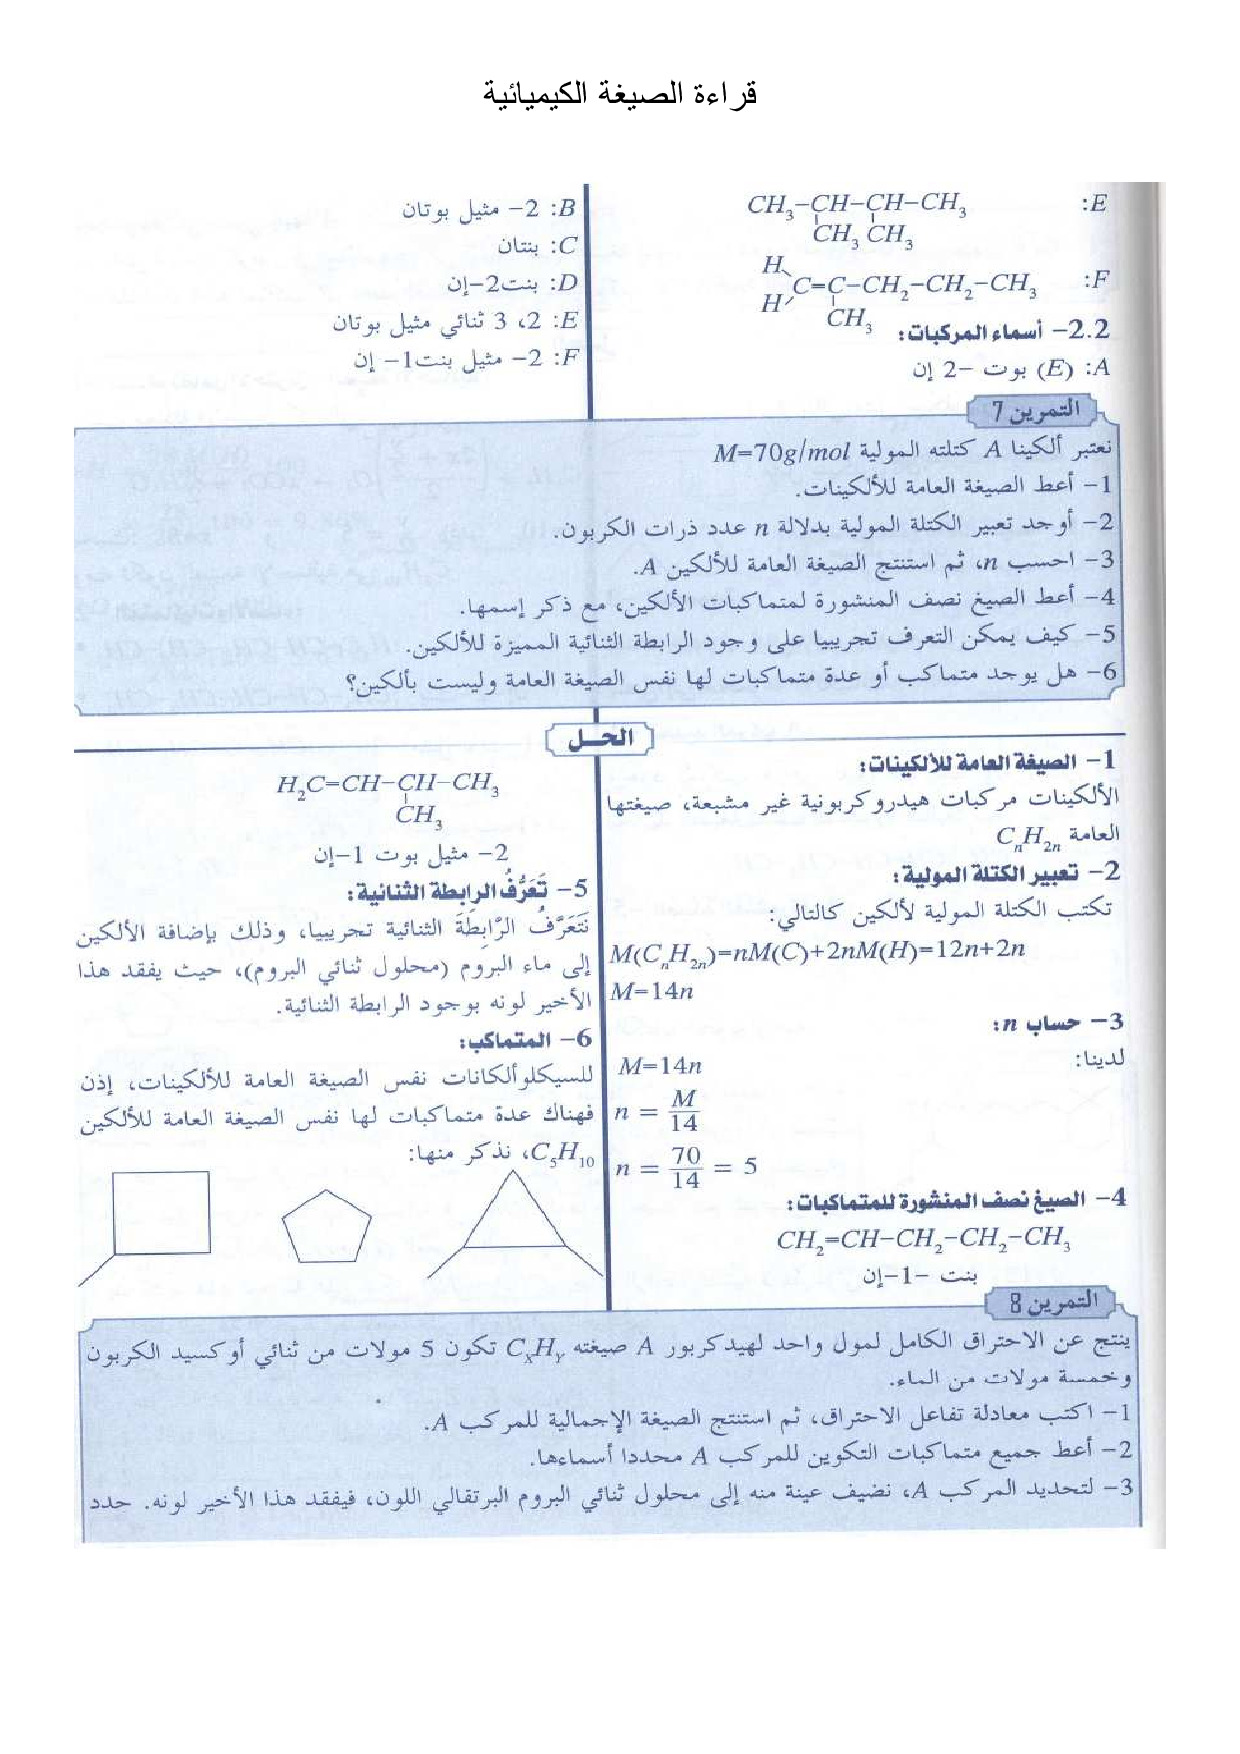 قراءة الصيغة الكيميائية
E: CH₃-CH-CH-CH₃
CH₃ CH₃
F: H
C=C-CH₂-CH₂-CH₃
H
CH₃
2.2- أسماء المركبات:
A: (E) بوت -2 إن
B: 2- مثيل بوتان
C: بنتان
D: بنت2-إن
E: 2، 3 ثنائي مثيل بوتان
F: 2- مثيل بنت1- إن
التمرين 7
نعتبر ألكينا A كتلته المولية M=70g/mol
1- أعط الصيغة العامة للألكينات.
2- أوجد تعبير الكتلة المولية بدلالة n عدد ذرات الكربون.
3- احسب n، ثم استنتج الصيغة العامة للألكين A.
4- أعط الصيغ نصف المنشورة لمتماكبات الألكين، مع ذكر إسمها.
5- كيف يمكن التعرف تجريبيا على وجود الرابطة الثنائية المميزة للألكين.
6- هل يوجد متماكب أو عدة متماكبات لها نفس الصيغة العامة وليست بألكين؟
الحل
1- الصيغة العامة للألكينات:
الألكينات مركبات هيدروكربونية غير مشبعة، صيغتها
العامة CₙH₂ₙ
2- تعبير الكتلة المولية:
تكتب الكتلة المولية لألكين كالتالي:
M(CₙH₂ₙ)=nM(C)+2nM(H)=12n+2n
M=14n
3- حساب n:
لدينا:
M=14n
n = M/14
n = 70/14 = 5
4- الصيغ نصف المنشورة للمتماكبات:
CH₂=CH-CH₂-CH₂-CH₃
بنت -1-إن
H₂C=CH-CH-CH₃
CH₃
2- مثيل بوت 1-إن
5- تَعَرُّفُ الرابطة الثنائية:
نَتَعَرَّفُ الرَّابِطَةَ الثنائية تجريبيا، وذلك بإضافة الألكين
إلى ماء البروم (محلول ثنائي البروم)، حيث يفقد هذا
الأخير لونه بوجود الرابطة الثنائية.
6- المتماكب:
للسيكلوألكانات نفس الصيغة العامة للألكينات، إذن
فهناك عدة متماكبات لها نفس الصيغة العامة للألكين
C₅H₁₀، نذكر منها:
التمرين 8
ينتج عن الاحتراق الكامل لمول واحد لهيدكربور A صيغته CₓHᵧ تكون 5 مولات من ثنائي أوكسيد الكربون
وخمسة مولات من الماء.
1- اكتب معادلة تفاعل الاحتراق، ثم استنتج الصيغة الإجمالية للمركب A.
2- أعط جميع متماكبات التكوين للمركب A محددا أسماءها.
3- لتحديد المركب A، نضيف عينة منه إلى محلول ثنائي البروم البرتقالي اللون، فيفقد هذا الأخير لونه. حدد